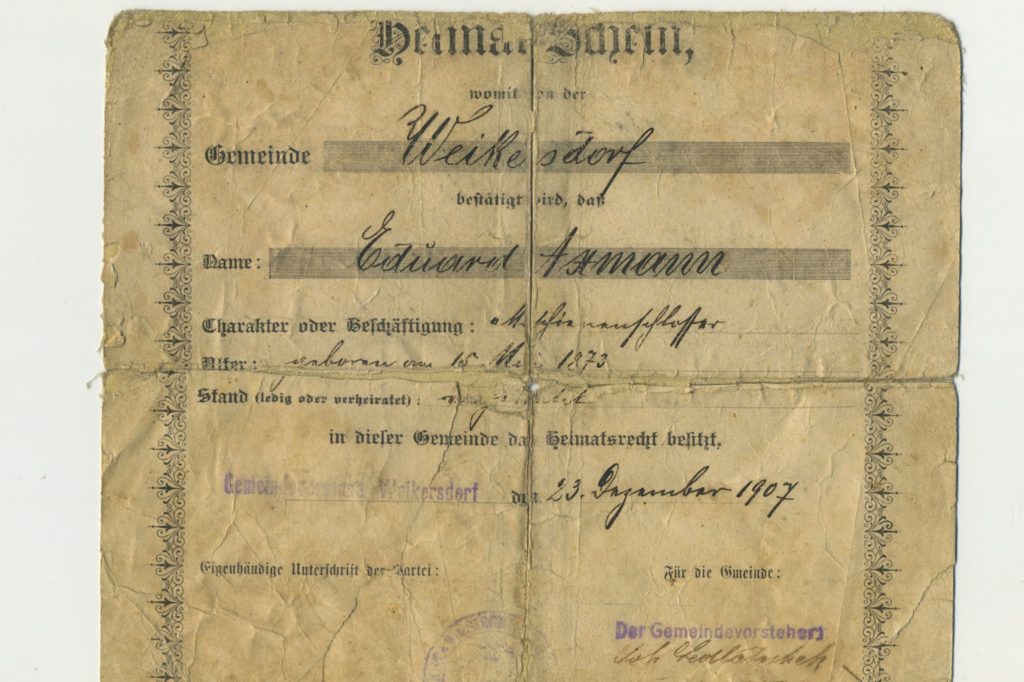 Heimat-Schein,
womit von der
Gemeinde Weikersdorf
bestätigt wird, daß
Name: Eduard Axmann
Charakter oder Beschäftigung: Maschienenschlosser
Alter: geboren am 15. Mai 1873
Stand (ledig oder verheiratet):
in dieser Gemeinde das Heimatsrecht besitzt.
Gemeindevorstand Weikersdorf den 23. Dezember 1907
Eigenhändige Unterschrift der Partei: Für die Gmeinde:
Der Gemeindevorsteher:
Joh. Sedlatschek